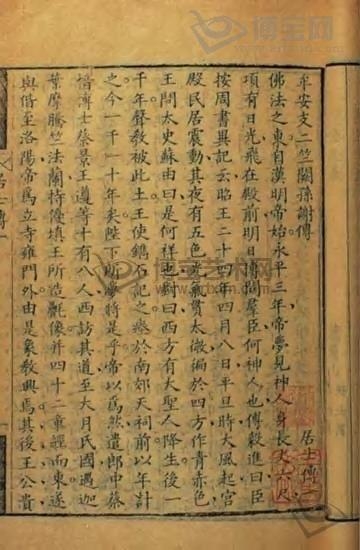 牟安支二竺闞孫謝傳
居士傳二
佛法之東自漢明帝始永平三年帝夢見神人身長丈六尺
項有日光飛在殿前明日傳問羣臣何神人也傅毅進曰臣
按周書異記云昭王二十四年四月八日平旦時大風起宮
殿民居震動其夜有五色光氣貫太微徧於四方作青赤色
王問太史蘇由曰是何祥也對曰西方有大聖人降生後一
千年聲教被此土王使鐫石記之瘞於南郊天祠前以年計
之今一千一十年矣陛下所夢將是乎帝以爲然遣郎中蔡
愔博士蔡景王遵等十有八人西訪其道至大月氏國遇迦
葉摩騰竺法蘭持優填王所造氎像并四十二章經而東遂
與偕至洛陽帝爲立寺雍門外由是象教興焉其後王公貴
居士傳一
博宝网
博宝艺术网